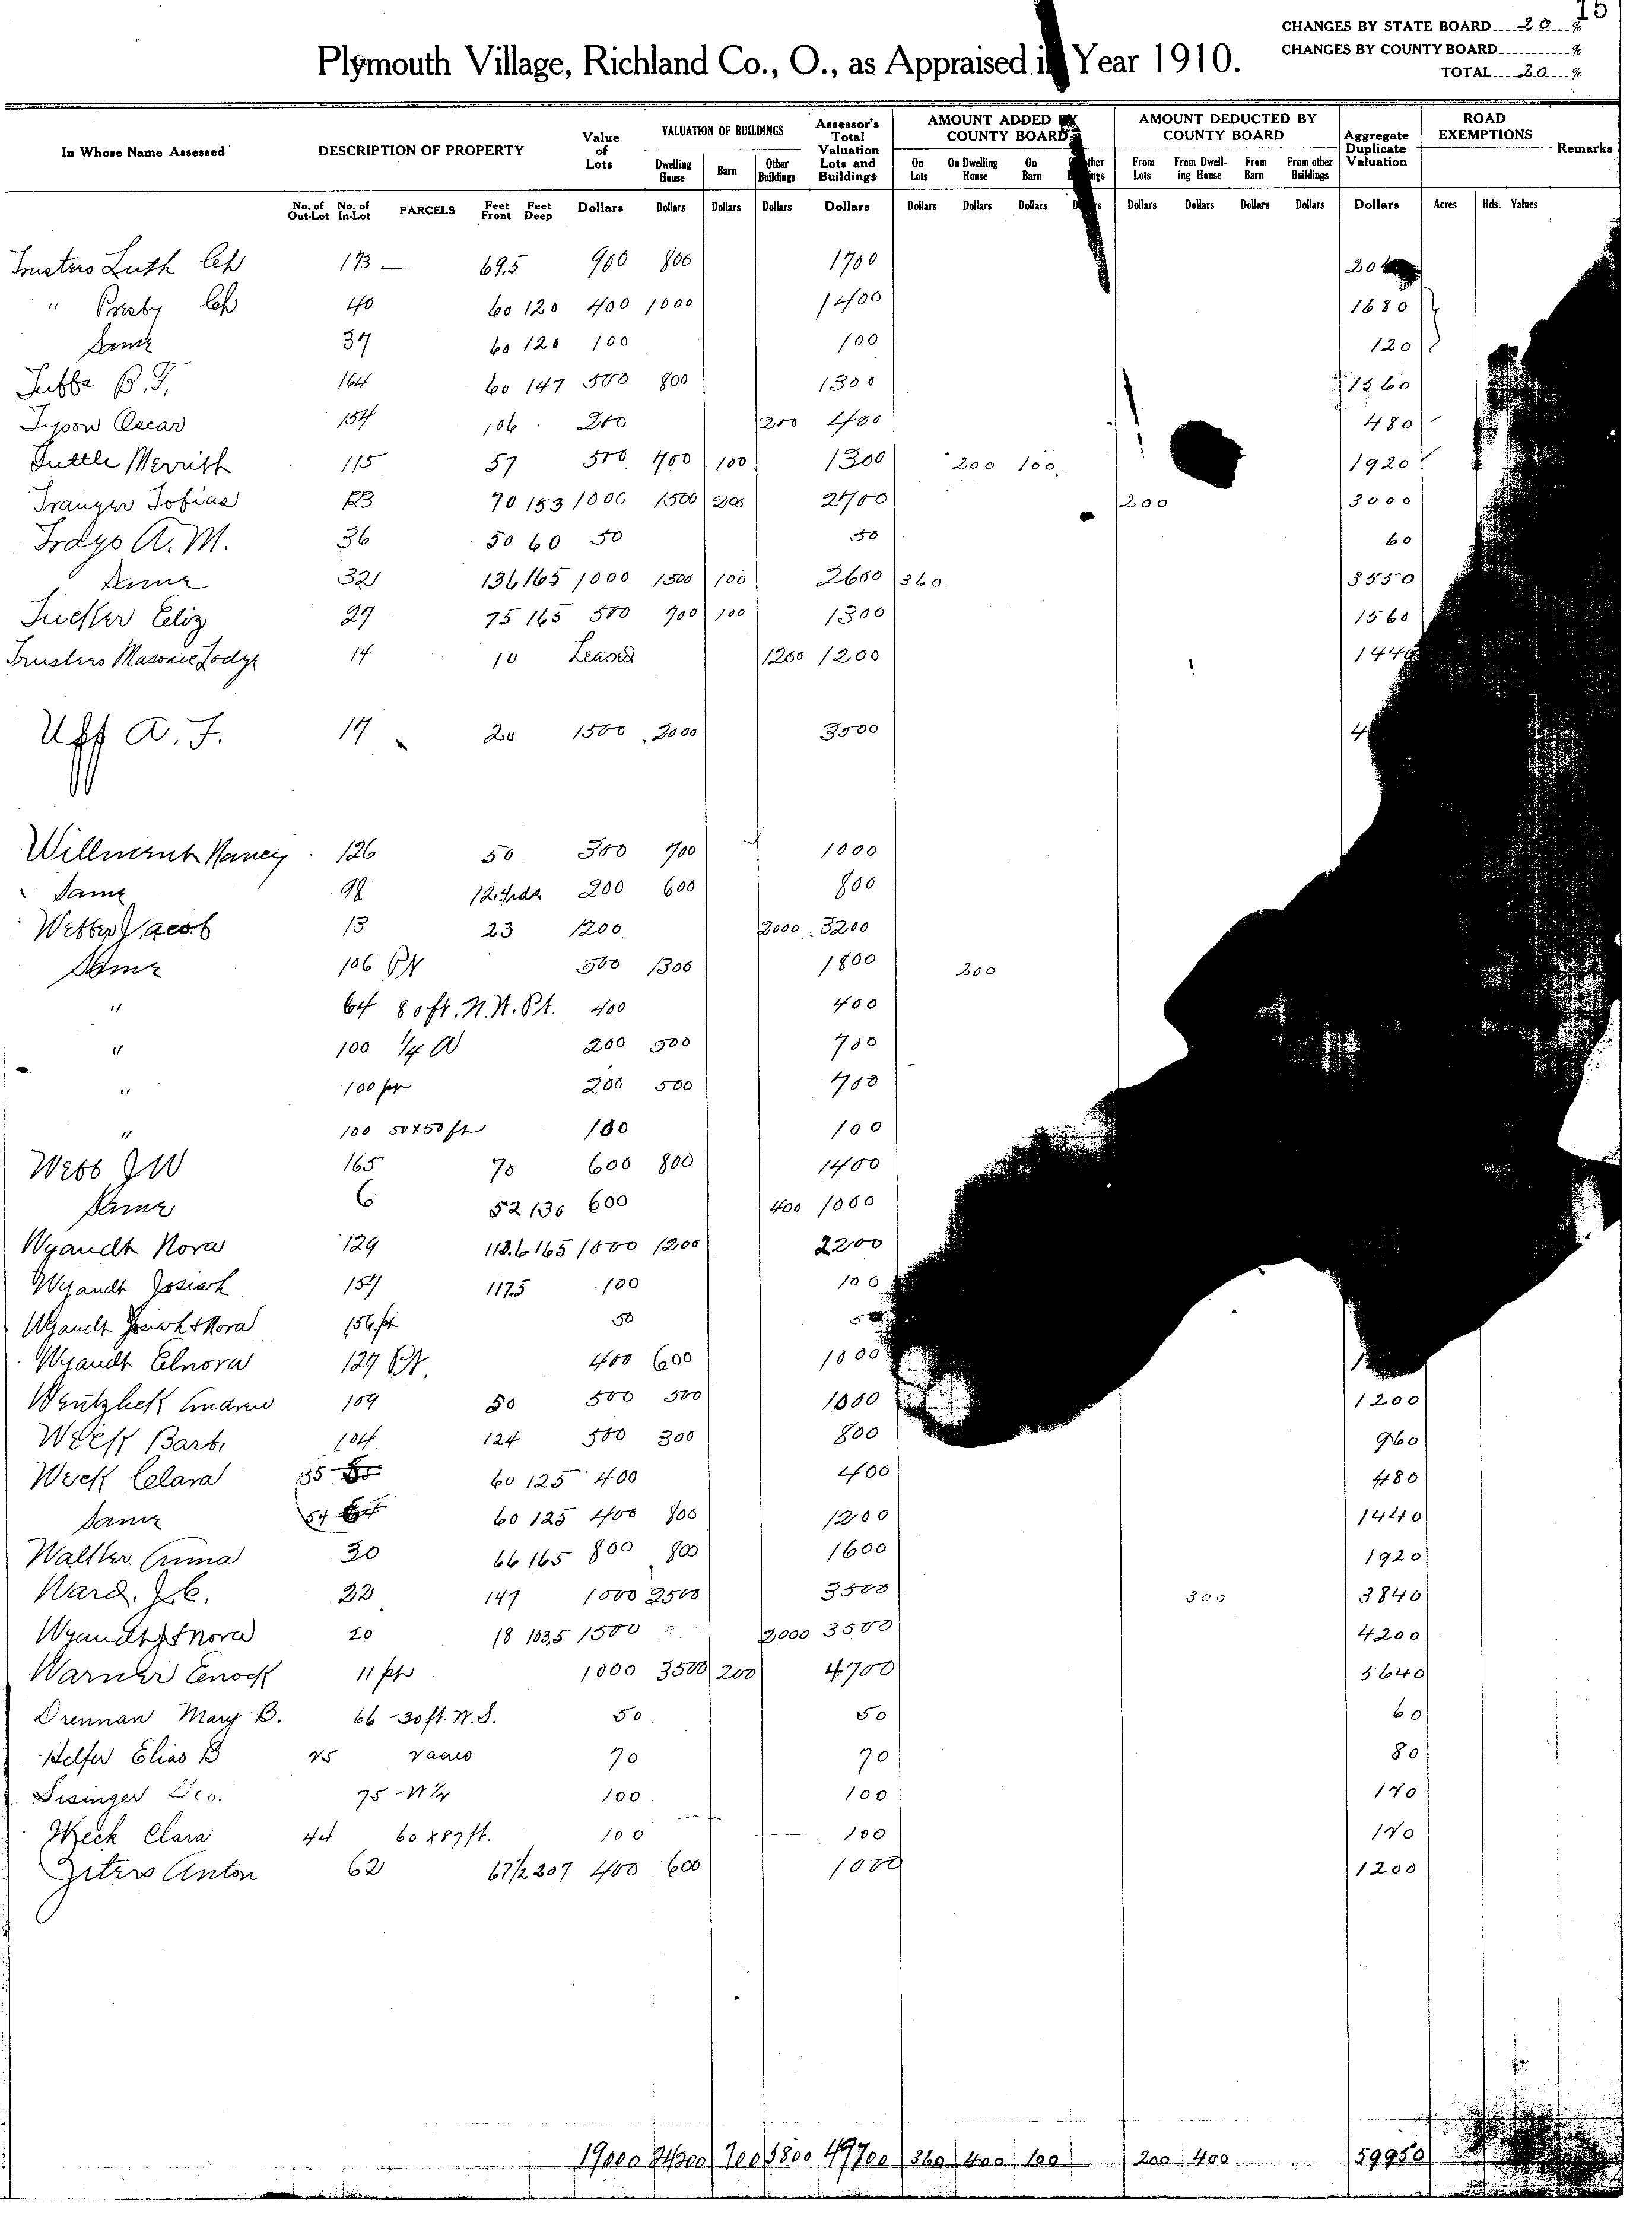 15
CHANGES BY STATE BOARD 20 %
CHANGES BY COUNTY BOARD %
TOTAL 20 %
Plymouth Village, Richland Co., O., as Appraised in Year 1910.
In Whose Name Assessed DESCRIPTION OF PROPERTY Value of Lots VALUATION OF BUILDINGS Assessor's Total Valuation Lots and Buildings AMOUNT ADDED BY COUNTY BOARD AMOUNT DEDUCTED BY COUNTY BOARD Aggregate Duplicate Valuation ROAD EXEMPTIONS Remarks
Dwelling House Barn Other Buildings On Lots On Dwelling House On Barn From Lots From Dwelling House From Barn From other Buildings
No. of Out-Lot No. of In-Lot PARCELS Feet Front Feet Deep Dollars Dollars Dollars Dollars Dollars Dollars Dollars Dollars Dollars Dollars Dollars Dollars Dollars Acres Hds. Values
Trustees Luth Ch 173 — 69.5 900 800 1700
" Presby Ch 40 60 120 400 1000 1400 1680
Same 37 60 120 100 100 120
Tubbs B.F. 164 60 147 500 800 1300 1560
Tyson Oscar 154 106 200 200 400 480
Tuttle Merritt 115 57 500 700 100 1300 200 100 1920
Tranger Tobias 123 70 153 1000 1500 200 2700 200 3000
Trago A. M. 36 50 60 50 50 60
Same 32 136 165 1000 1500 100 2600 360 3550
Tucker Eliz 27 75 165 500 700 100 1300 1560
Trustees Masonic Lodge 14 10 Leased 1200 1200 1440
Uff A. F. 17 20 1500 2000 3500
Willment Nancy 126 50 300 700 1000
Same 98 200 600 800
Webber Jacob 13 23 1200 2000 3200
Same 106 Pt 500 1300 1800 200
" 64 80 ft. N.W. Pt. 400 400
" 100 1/4 A 200 500 700
" 100 pt 200 500 700
" 100 50 x 50 ft 100 100
Webb J W 165 70 600 800 1400
Same 6 52 130 600 400 1000
Wyandt Nora 129 165 1000 1200 2200
Wyandt Josiah 157 117.5 100 100
Wyandt Josiah & Nora 156 pt 50 50
Wyandt Elnora 127 Pt. 400 600 1000
Andrew 109 50 500 500 1000 1200
Weck Barb. 104 124 500 300 800 960
Weck Clara 55 60 125 400 400 480
Same 54 60 125 400 800 1200 1440
Walker Anna 30 66 165 800 800 1600 1920
Ward. J.C. 22 147 1000 2500 3500 300 3840
Wyandt J & Nora 20 18 103.5 1500 2000 3500 4200
Warner Enock 11 pt 1000 3500 200 4700 5640
Drennan Mary B. 66 - 30 ft. W. S. 50 50 60
Helfer Elias B 25 2 acres 70 70 80
Sisinger Geo. 75 - W 1/2 100 100 120
Weck Clara 44 60 x 87 ft. 100 100 120
Anton 62 67 1/2 207 400 600 1000 1200
19000 700 5800 49700 360 400 100 200 400 59950